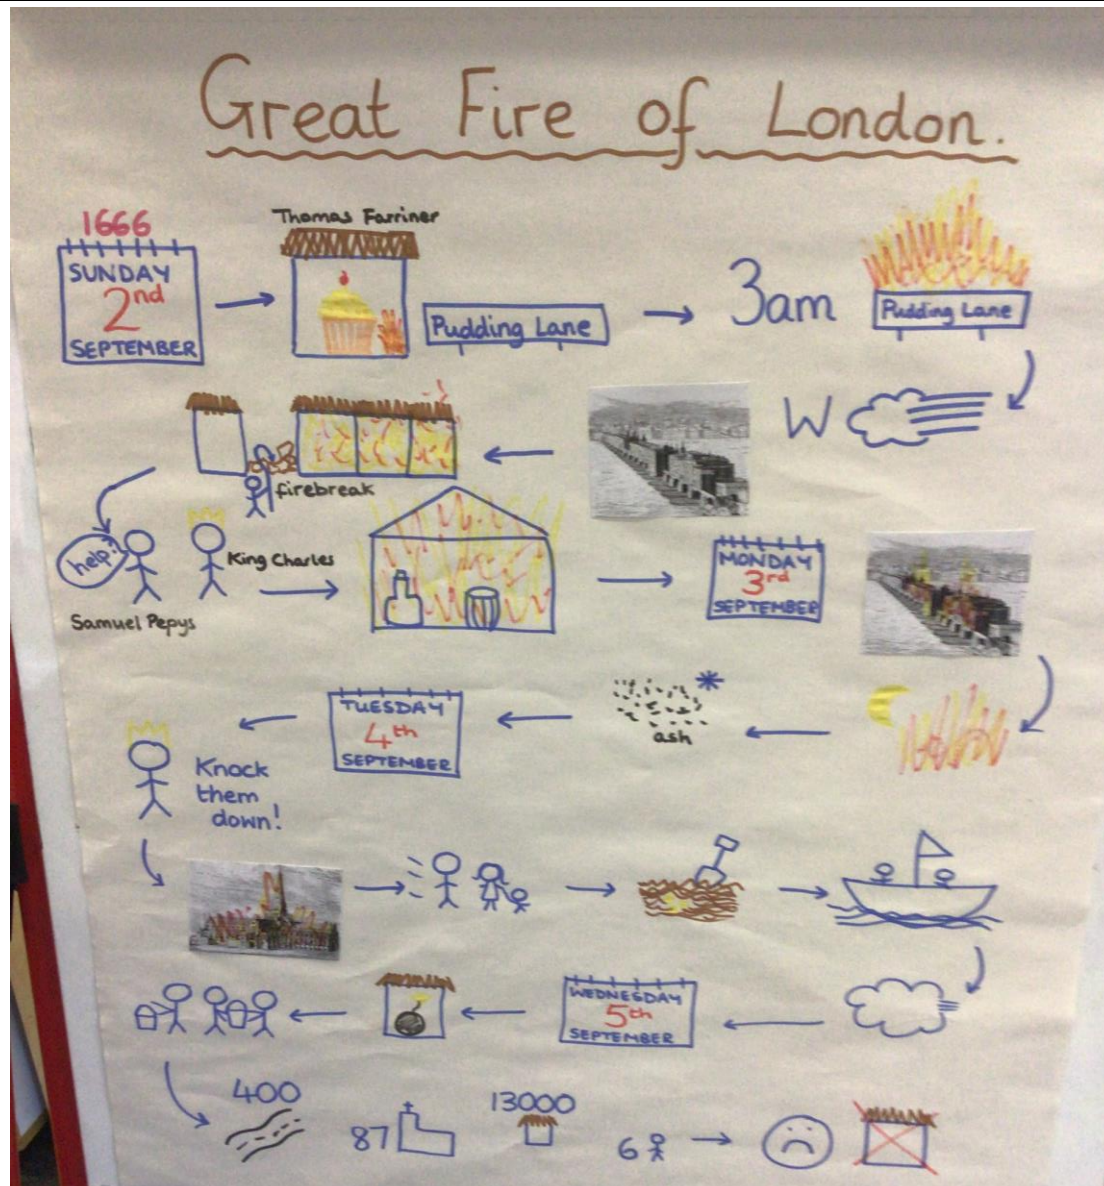 Great Fire of London.
1666
SUNDAY
2nd
SEPTEMBER
Thomas Farriner
Pudding Lane
3am
Pudding Lane
W
firebreak
help!
Samuel Pepys
King Charles
MONDAY
3rd
SEPTEMBER
ash
TUESDAY
4th
SEPTEMBER
Knock
them
down!
WEDNESDAY
5th
SEPTEMBER
400
87
13000
6